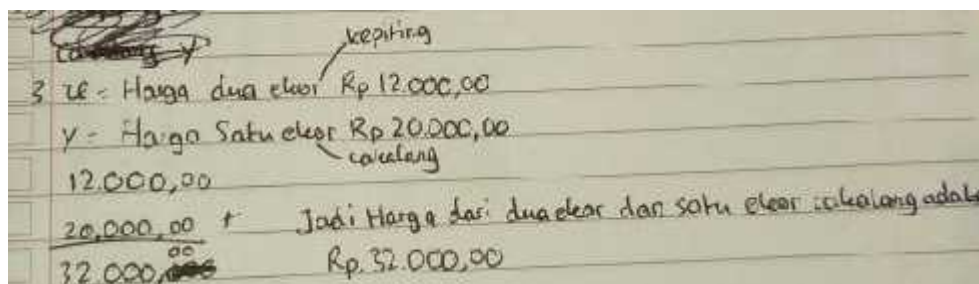 kepiting
3 x = Harga dua ekor Rp 12.000,00
y = Harga Satu ekor Rp 20.000,00
cakalang
12.000,00
20.000,00 + Jadi Harga dari dua ekor dan satu ekor cakalang adalah
32.000,00 Rp. 32.000,00